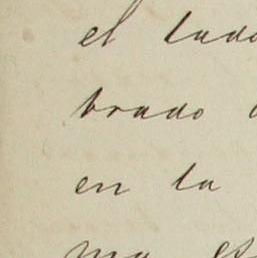 el lado
brado
en la
ma es